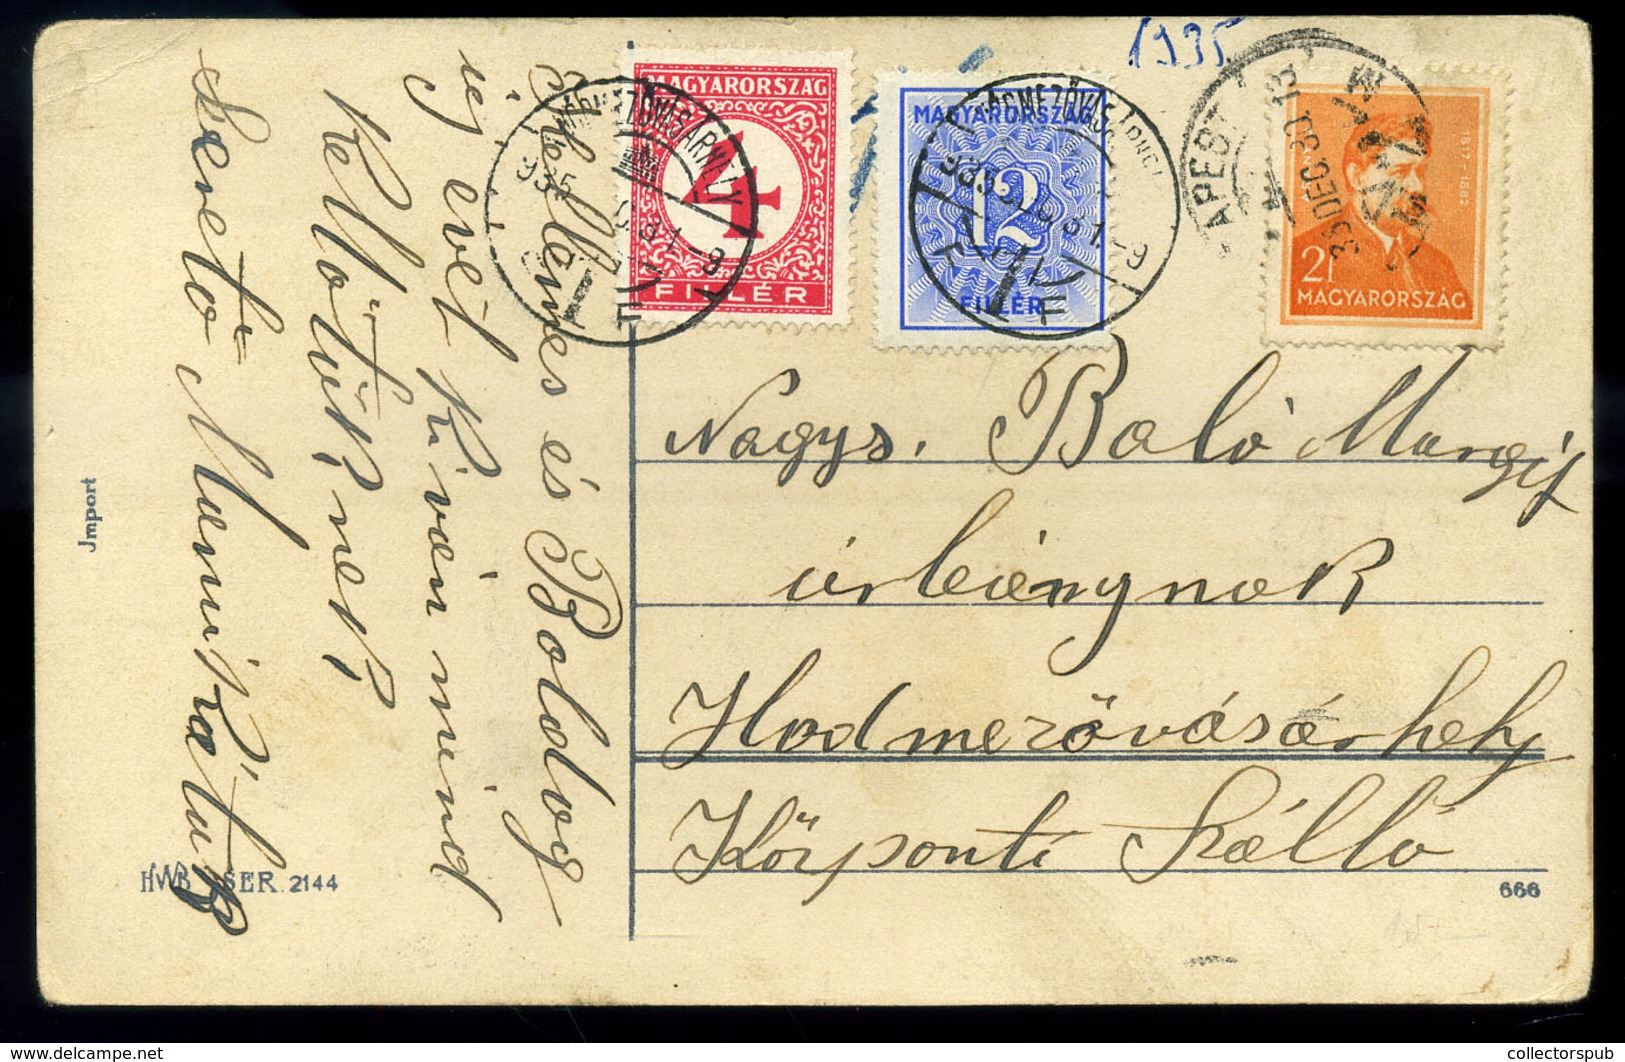 1935
MAGYARORSZÁG
4
FILLÉR
MAGYARORSZÁG
12
FILLÉR
1817-1882
2f
MAGYARORSZÁG
HÓDMEZŐVÁSÁRHELY
935
31-8
HÓDMEZŐVÁSÁRHELY
935
31-8
35 DEC 30
Kellemes és Boldog
új évet kíván mind
kettőtöknek
szerető Mamikátok
Nagys. Baló Margit
úrleánynak
Hodmezővásárhely
Központi Szálló
Jmport
HWB SER. 2144
666
collectorspub